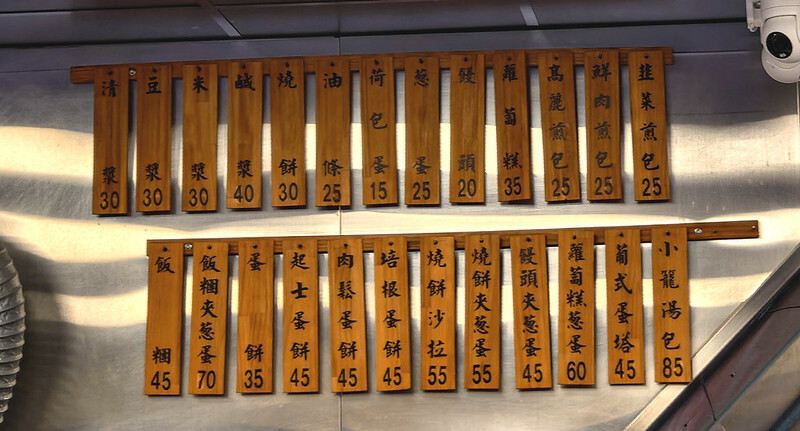 清漿30
豆漿30
米漿30
鹹漿40
燒餅30
油條25
荷包蛋15
蔥蛋25
饅頭20
蘿蔔糕35
高麗煎包25
鮮肉煎包25
韭菜煎包25
飯糰45
飯糰夾蔥蛋70
蛋餅35
起士蛋餅45
肉鬆蛋餅45
培根蛋餅45
燒餅沙拉55
燒餅夾蔥蛋55
饅頭夾蔥蛋45
蘿蔔糕蔥蛋60
葡式蛋塔45
小籠湯包85